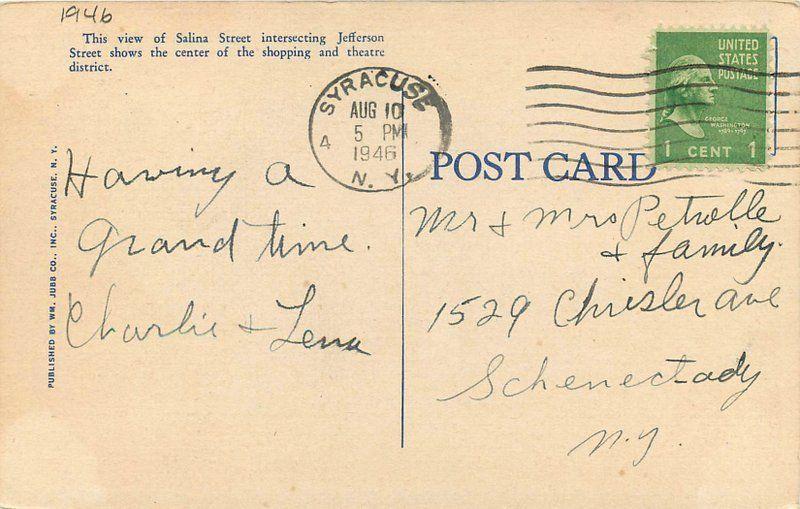 1946
This view of Salina Street intersecting Jefferson
Street shows the center of the shopping and theatre
district.
SYRACUSE
AUG 10
5 PM
1946
N. Y.
4
UNITED
STATES
POSTAGE
GEORGE
WASHINGTON
1789-1797
1 CENT 1
POST CARD
PUBLISHED BY WM. JUBB CO., INC., SYRACUSE, N. Y.
Having a
grand time.
Charlie & Lena
Mr & Mrs Petrolle
& family.
1529 Chrisler ave
Schenectady
N.Y.